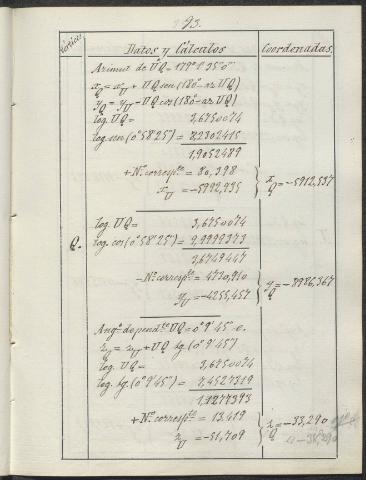 93.
Vértices
Datos y Cálculos
Coordenadas
Azimut de UQ = 179°1'35"0'''
x_Q = x_U + UQ sen (180°-az UQ)
y_Q = y_U - UQ cos (180°-az UQ)
log. UQ = 3,6750074
log. sen (0°58'25") = 8,2302415
1,9052489
+ N.º corresp.te = 80,398
x_U = -5992,935
x_Q = -5912,537
log. UQ = 3,6750074
Q. log. cos (0°58'25") = 9,9999373
3,6749447
- N.º corresp.te = 4730,910
y_U = -4255,457
y_Q = -8986,367
Ang.º de pend.te UQ = 0°9'45" e.
z_Q = z_U + UQ tg. (0°9'45")
log. UQ = 3,6750074
log. tg. (0°9'45") = 7,4527319
1,1277393
+ N.º corresp.te = 13,419
z_U = -51,709
z_Q = -33,290
-38,290